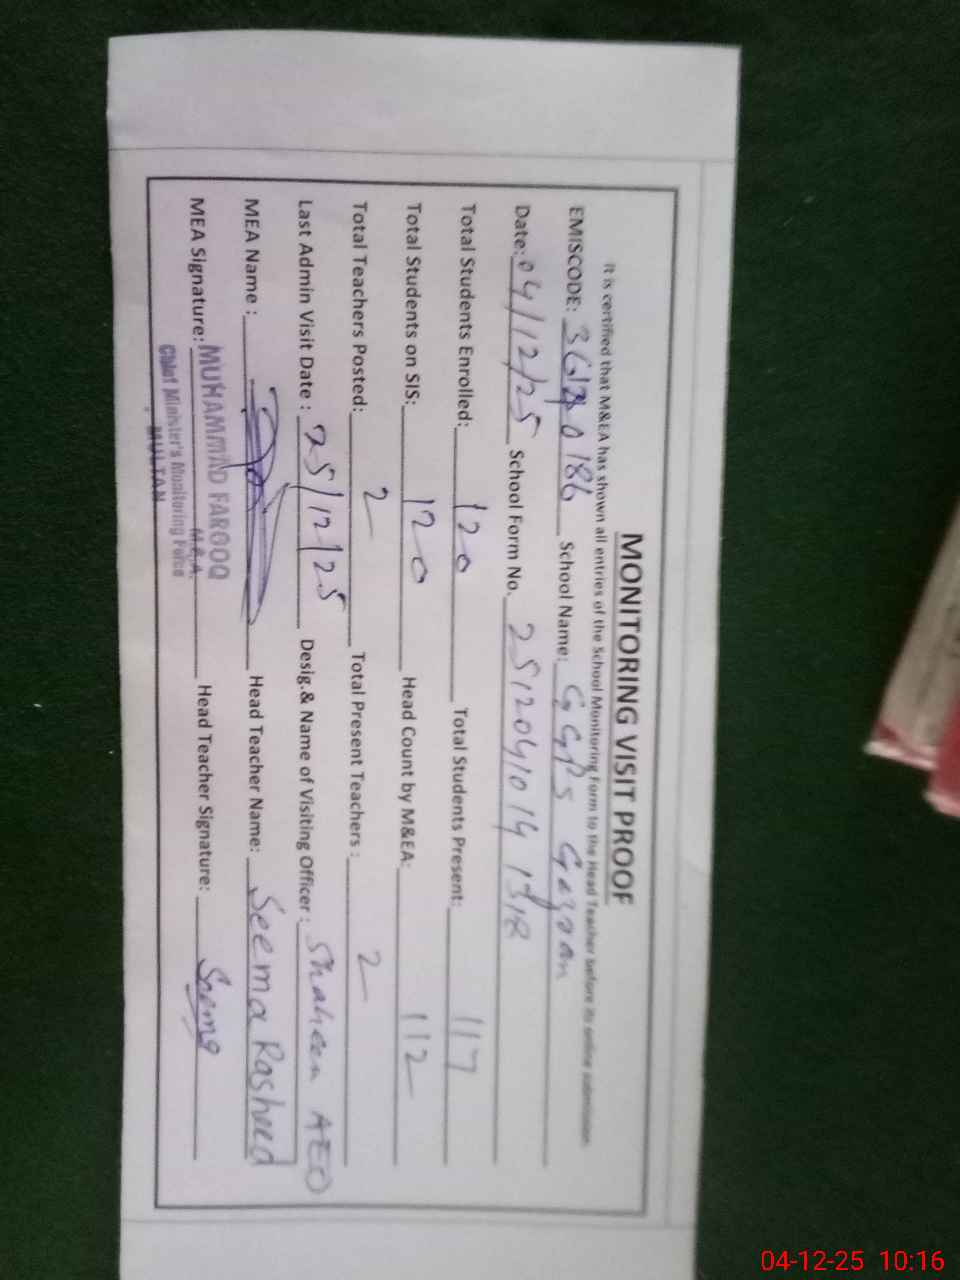 MONITORING VISIT PROOF
It is certified that M&EA has shown all entries of the School Monitoring Form to the Head Teacher before its online submission
EMISCODE: 0186 School Name: GGPS
Date: 04/12/25 School Form No. 2512041014 1318
Total Students Enrolled: 120 Total Students Present: 117
Total Students on SIS: 120 Head Count by M&EA: 112
Total Teachers Posted: 2 Total Present Teachers : 2
Last Admin Visit Date : 25/12/25 Desig.& Name of Visiting Officer : Shaheen AEO
MEA Name : Head Teacher Name: Seema Rasheed
MEA Signature: MUHAMMAD FAROOQ Head Teacher Signature: Seema
M.E.A.
Chief Minister's Monitoring Force
MULTAN
04-12-25 10:16